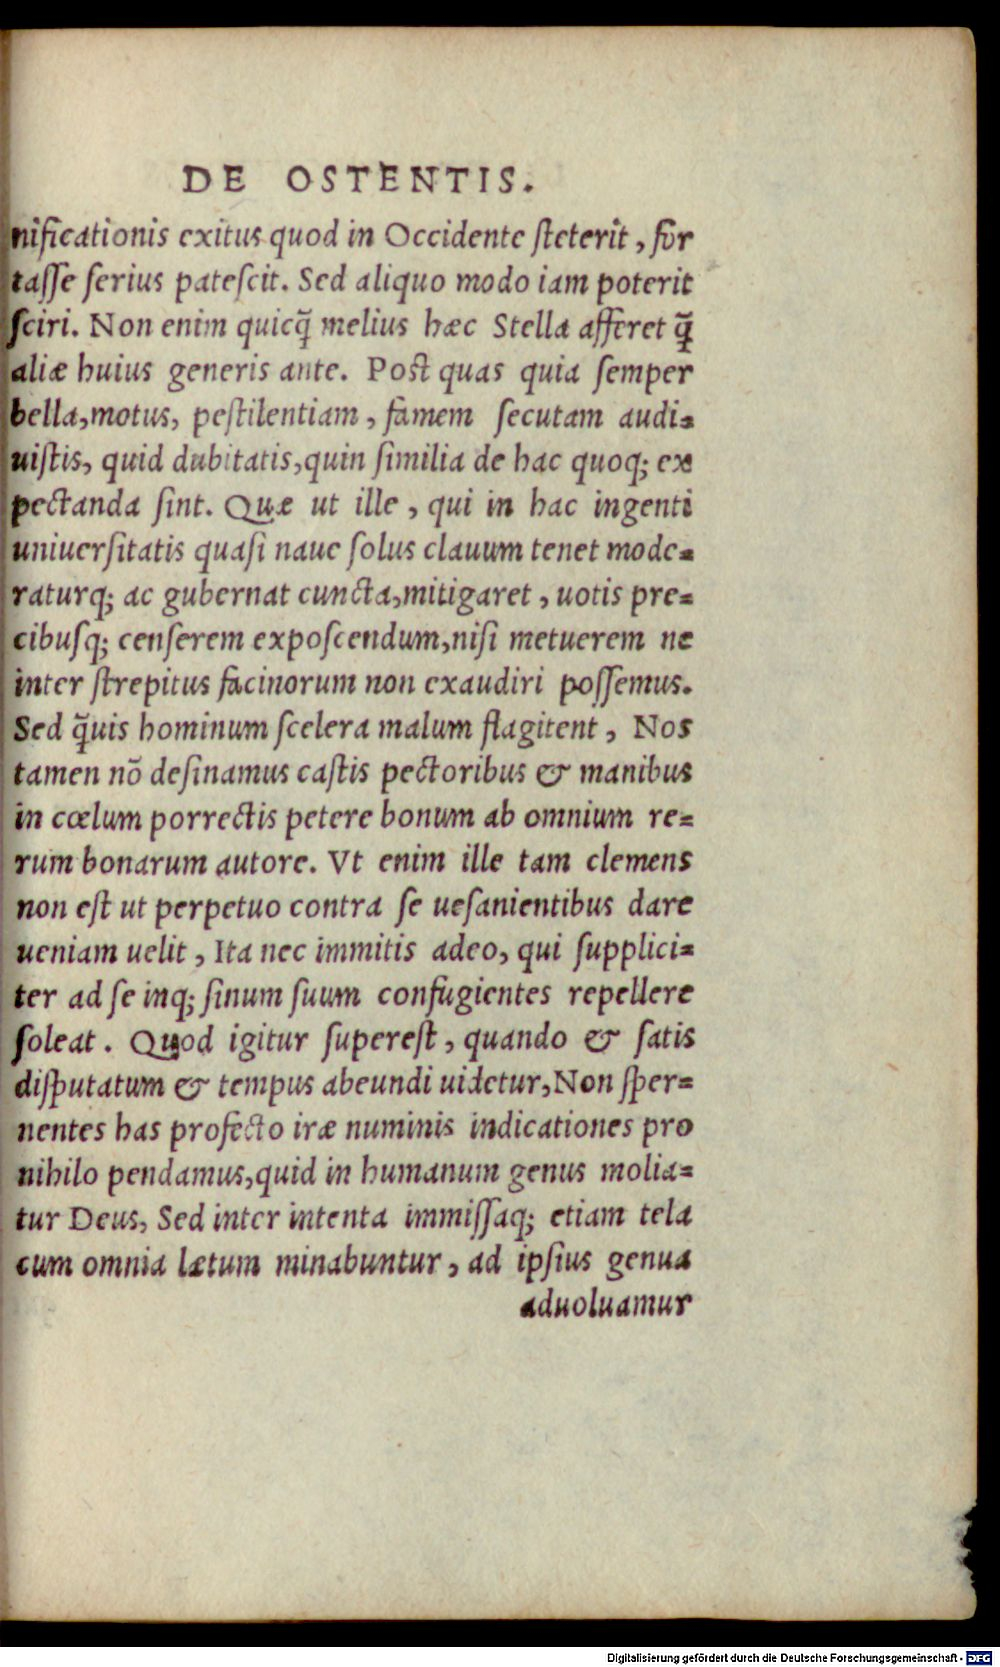 DE OSTENTIS.
nificationis exitus quod in Occidente ſteterit, for
taſſe ſerius pateſcit. Sed aliquo modo iam poterit
ſciri. Non enim quicq̃ melius hæc Stella afferet q̃
aliæ huius generis ante. Poſt quas quia ſemper
bella, motus, peſtilentiam, famem ſecutam audi=
uiſtis, quid dubitatis, quin ſimilia de hac quoq; ex
pectanda ſint. Quæ ut ille, qui in hac ingenti
uniuerſitatis quaſi naue ſolus clauum tenet mode=
raturq; ac gubernat cuncta, mitigaret, uotis pre=
cibuſq; cenſerem expoſcendum, niſi metuerem ne
inter ſtrepitus facinorum non exaudiri poſſemus.
Sed q̃uis hominum ſcelera malum flagitent, Nos
tamen nõ deſinamus caſtis pectoribus & manibus
in cœlum porrectis petere bonum ab omnium re=
rum bonarum autore. Vt enim ille tam clemens
non eſt ut perpetuo contra ſe ueſanientibus dare
ueniam uelit, Ita nec immitis adeo, qui ſupplici=
ter ad ſe inq; ſinum ſuum confugientes repellere
ſoleat. Quod igitur ſupereſt, quando & ſatis
diſputatum & tempus abeundi uidetur, Non ſper=
nentes has profecto iræ numinis indicationes pro
nihilo pendamus, quid in humanum genus molia=
tur Deus, Sed inter intenta immiſſaq; etiam tela
cum omnia lætum minabuntur, ad ipſius genua
aduoluamur
Digitalisierung gefördert durch die Deutsche Forschungsgemeinschaft - DFG